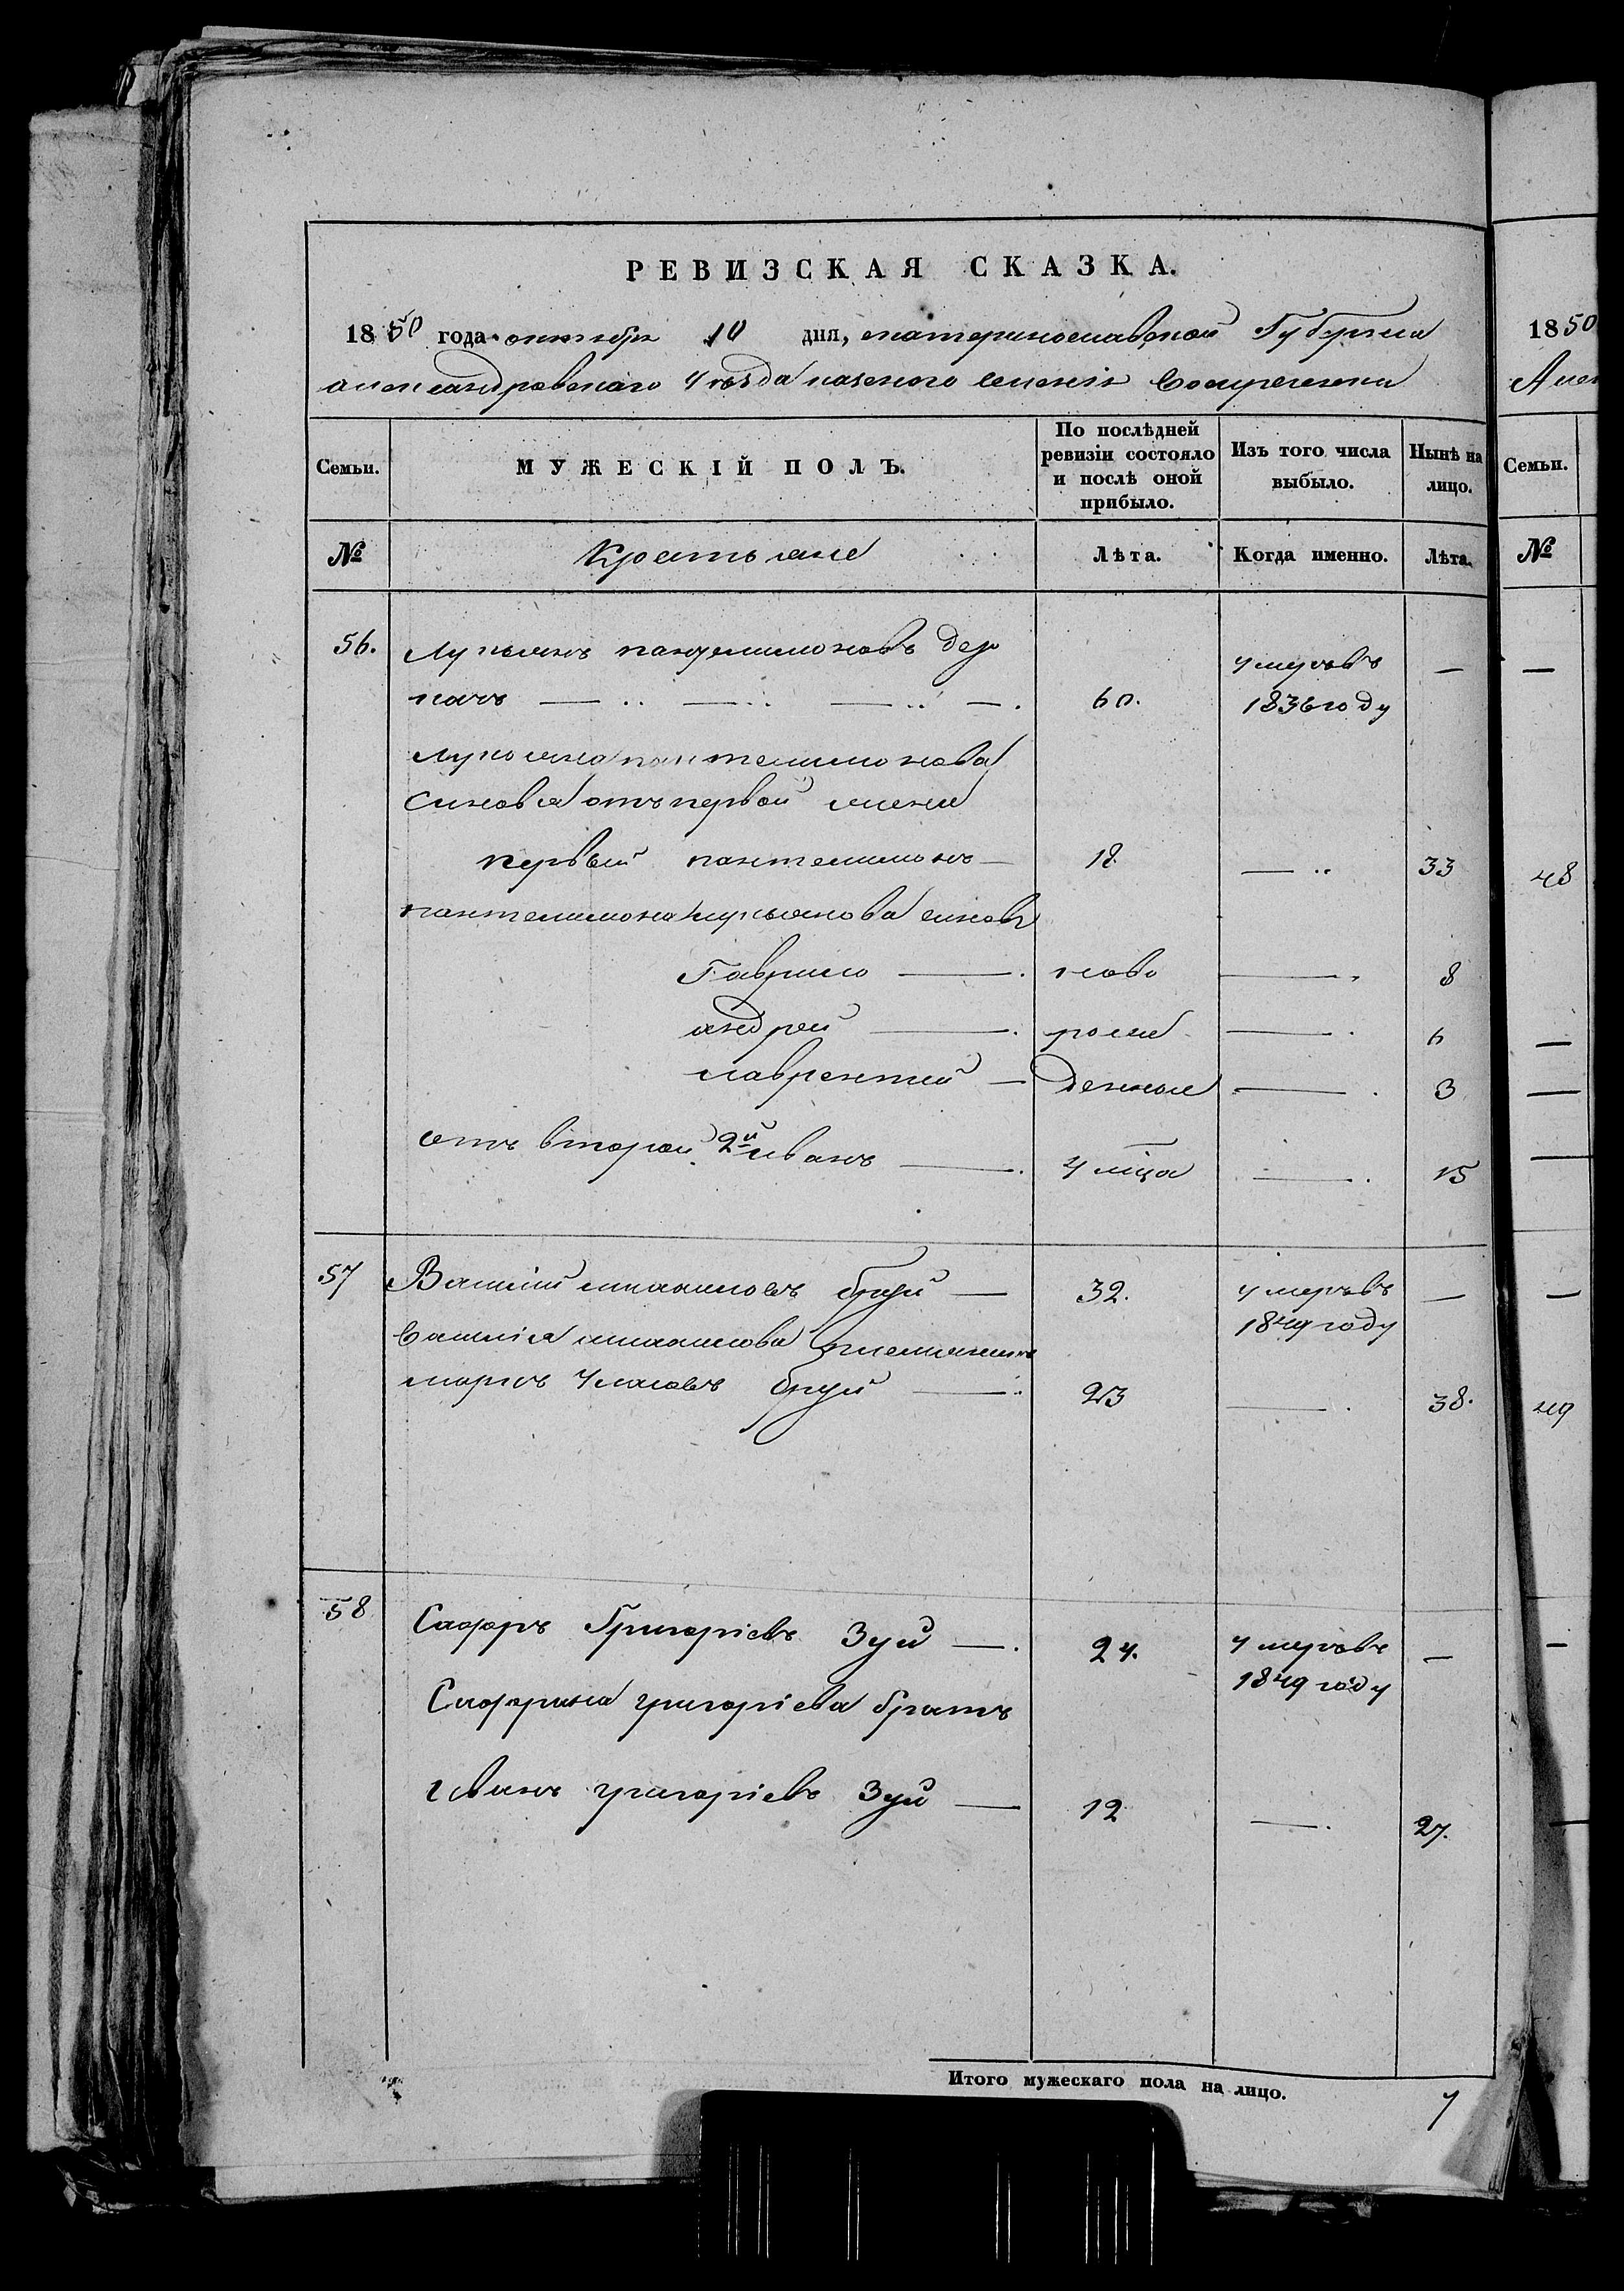 РЕВИЗСКАЯ СКАЗКА.
1850 года октября 10 дня, екатеринославской Губернии
александровскаго уезда казеного селенія Воскресенки
Семьи. МУЖЕСКІЙ ПОЛЪ. По послѣдней ревизіи состояло и послѣ оной прибыло. Изъ того числа выбыло. Нынѣ на лицо.
№ Крестьяне Лѣта. Когда именно. Лѣта.
56. Лукьянъ пантелимоновъ Дер умеръ въ — 
качъ — 60. 1836 году
лукьяна пантелимонова
синовья отъ первой жени
первый пантелимонъ — 18. — 33
пантелимона лукьянова синов
Гаврило — ново — 8
андрей — рожд — 6
лаврентий — денные — 3
отъ второй 2й иванъ — — 15
57 Василий михайловъ бруй — 32. умеръ въ —
1849 году
василія михайлова племянникъ
марко бруй — 23 — 38.
58 Григоріевъ Зуй — 24. умеръ въ —
1849 году
григоріева братъ
Иванъ григоріевъ Зуй — 12 — 27.
Итого мужескаго пола на лицо. 7
1850
Алек
Семьи.
№
—
48
—
—
—
—
49
—
—